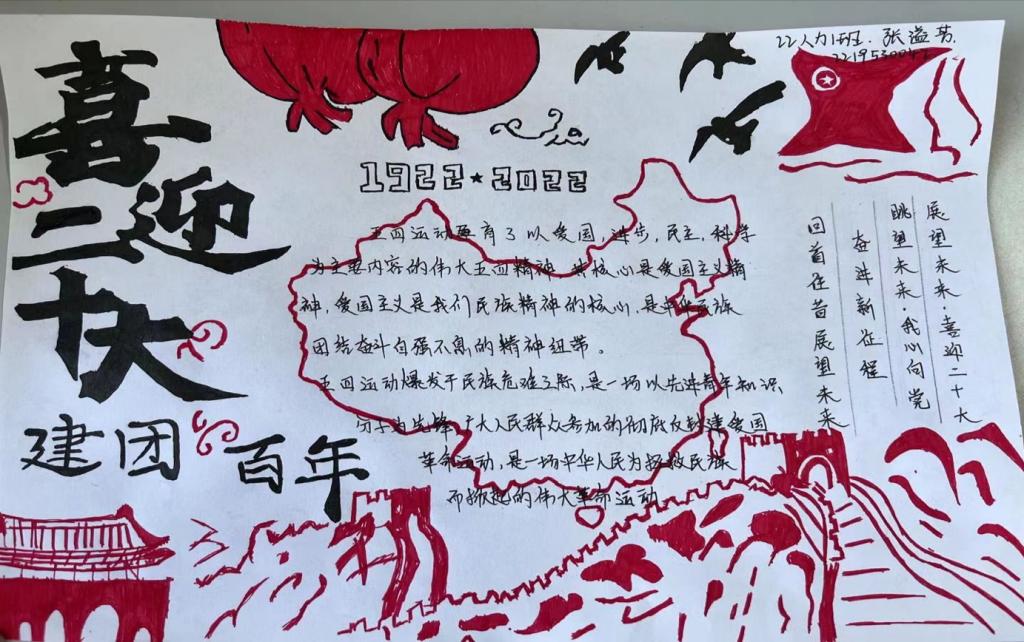 喜迎
二十大
建团百年
22人力1班.张溢芳
1922★2022
五四运动孕育了以爱国,进步,民主,科学
为主要内容的伟大五四精神,其核心是爱国主义精
神,爱国主义是我们民族精神的核心,是中华民族
团结奋斗自强不息的精神纽带。
五四运动爆发于民族危难之际,是一场以先进青年知识
分子为先锋,广大人民群众参加的彻底反封建爱国
革命运动,是一场中华人民为拯救民族
而掀起的伟大革命运动
展望未来·喜迎二十大
眺望未来·我心向党
奋进新征程
回首往昔展望未来